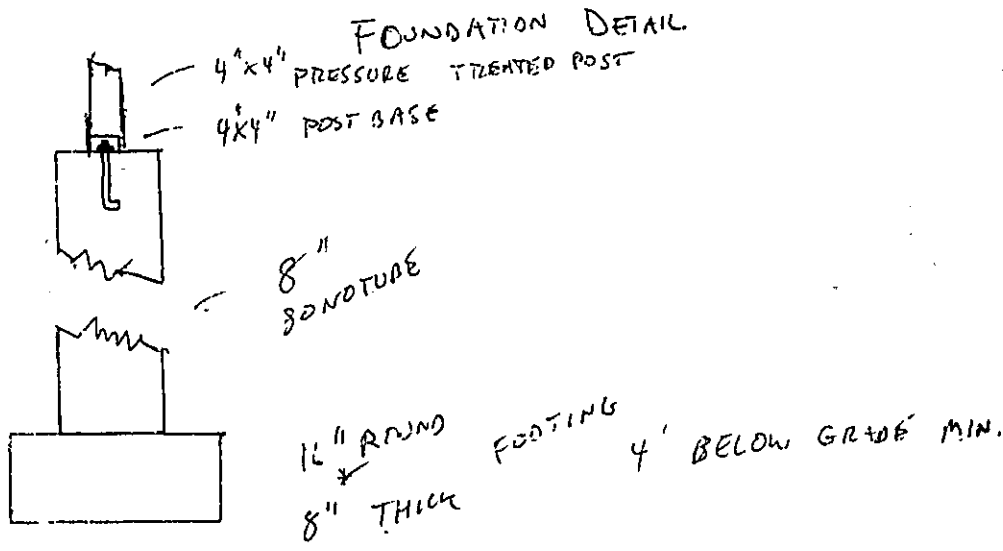 FOUNDATION DETAIL
4"x4" PRESSURE TREATED POST
4"x4" POST BASE
8"
SONOTUBE
ROUND
8" THICK
FOOTING
4' BELOW GRADE MIN.